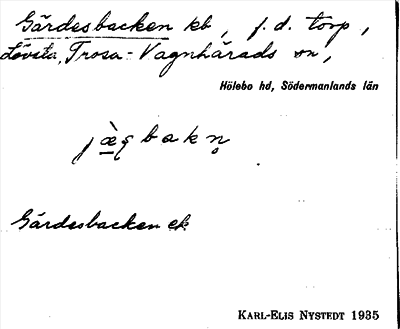 Gärdesbacken kb, f.d. torp,
Lövsta, Trosa-Vagnhärads sn,
Hölebo hd, Södermanlands län
Gärdesbacken ek.
KARL-ELIS NYSTEDT 1935